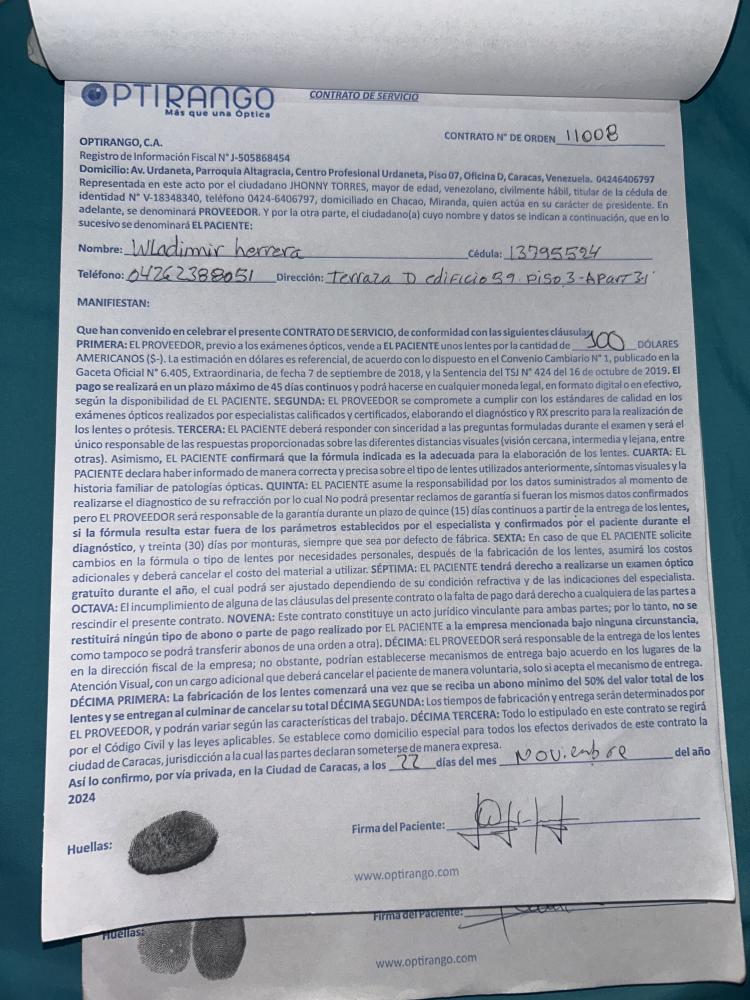 OPTIRANGO
Más que una Óptica
CONTRATO DE SERVICIO
OPTIRANGO, C.A.
CONTRATO N° DE ORDEN 11008
Registro de Información Fiscal N° J-505868454
Domicilio: Av. Urdaneta, Parroquia Altagracia, Centro Profesional Urdaneta, Piso 07, Oficina D, Caracas, Venezuela. 04246406797
Representada en este acto por el ciudadano JHONNY TORRES, mayor de edad, venezolano, civilmente hábil, titular de la cédula de
identidad N° V-18348340, teléfono 0424-6406797, domiciliado en Chacao, Miranda, quien actúa en su carácter de presidente. En
adelante, se denominará PROVEEDOR. Y por la otra parte, el ciudadano(a) cuyo nombre y datos se indican a continuación, que en lo
sucesivo se denominará EL PACIENTE:
Nombre: Wladimir herrera Cédula: 13795594
Teléfono: 04262388051 Dirección: Terraza D edificio 59. Piso 3-Apart 31
MANIFIESTAN:
Que han convenido en celebrar el presente CONTRATO DE SERVICIO, de conformidad con las siguientes cláusulas
PRIMERA: EL PROVEEDOR, previo a los exámenes ópticos, vende a EL PACIENTE unos lentes por la cantidad de 100 DÓLARES
AMERICANOS ($-). La estimación en dólares es referencial, de acuerdo con lo dispuesto en el Convenio Cambiario N° 1, publicado en la
Gaceta Oficial N° 6.405, Extraordinaria, de fecha 7 de septiembre de 2018, y la Sentencia del TSJ N° 424 del 16 de octubre de 2019. El
pago se realizará en un plazo máximo de 45 días continuos y podrá hacerse en cualquier moneda legal, en formato digital o en efectivo,
según la disponibilidad de EL PACIENTE. SEGUNDA: EL PROVEEDOR se compromete a cumplir con los estándares de calidad en los
exámenes ópticos realizados por especialistas calificados y certificados, elaborando el diagnóstico y RX prescrito para la realización de
los lentes o prótesis. TERCERA: EL PACIENTE deberá responder con sinceridad a las preguntas formuladas durante el examen y será el
único responsable de las respuestas proporcionadas sobre las diferentes distancias visuales (visión cercana, intermedia y lejana, entre
otras). Asimismo, EL PACIENTE confirmará que la fórmula indicada es la adecuada para la elaboración de los lentes. CUARTA: EL
PACIENTE declara haber informado de manera correcta y precisa sobre el tipo de lentes utilizados anteriormente, síntomas visuales y la
historia familiar de patologías ópticas. QUINTA: EL PACIENTE asume la responsabilidad por los datos suministrados al momento de
realizarse el diagnostico de su refracción por lo cual No podrá presentar reclamos de garantía si fueran los mismos datos confirmados
pero EL PROVEEDOR será responsable de la garantía durante un plazo de quince (15) días continuos a partir de la entrega de los lentes,
si la fórmula resulta estar fuera de los parámetros establecidos por el especialista y confirmados por el paciente durante el
diagnóstico, y treinta (30) días por monturas, siempre que sea por defecto de fábrica. SEXTA: En caso de que EL PACIENTE solicite
cambios en la fórmula o tipo de lentes por necesidades personales, después de la fabricación de los lentes, asumirá los costos
adicionales y deberá cancelar el costo del material a utilizar. SÉPTIMA: EL PACIENTE tendrá derecho a realizarse un examen óptico
gratuito durante el año, el cual podrá ser ajustado dependiendo de su condición refractiva y de las indicaciones del especialista.
OCTAVA: El incumplimiento de alguna de las cláusulas del presente contrato o la falta de pago dará derecho a cualquiera de las partes a
rescindir el presente contrato. NOVENA: Este contrato constituye un acto jurídico vinculante para ambas partes; por lo tanto, no se
restituirá ningún tipo de abono o parte de pago realizado por EL PACIENTE a la empresa mencionada bajo ninguna circunstancia,
como tampoco se podrá transferir abonos de una orden a otra). DÉCIMA: EL PROVEEDOR será responsable de la entrega de los lentes
en la dirección fiscal de la empresa; no obstante, podrían establecerse mecanismos de entrega bajo acuerdo en los lugares de la
Atención Visual, con un cargo adicional que deberá cancelar el paciente de manera voluntaria, solo si acepta el mecanismo de entrega.
DÉCIMA PRIMERA: La fabricación de los lentes comenzará una vez que se reciba un abono mínimo del 50% del valor total de los
lentes y se entregan al culminar de cancelar su total DÉCIMA SEGUNDA: Los tiempos de fabricación y entrega serán determinados por
EL PROVEEDOR, y podrán variar según las características del trabajo. DÉCIMA TERCERA: Todo lo estipulado en este contrato se regirá
por el Código Civil y las leyes aplicables. Se establece como domicilio especial para todos los efectos derivados de este contrato la
ciudad de Caracas, jurisdicción a la cual las partes declaran someterse de manera expresa.
Así lo confirmo, por vía privada, en la Ciudad de Caracas, a los 22 días del mes Noviembre del año
2024
Huellas:
Firma del Paciente:
www.optirango.com
Huellas:
Firma del Paciente:
www.optirango.com